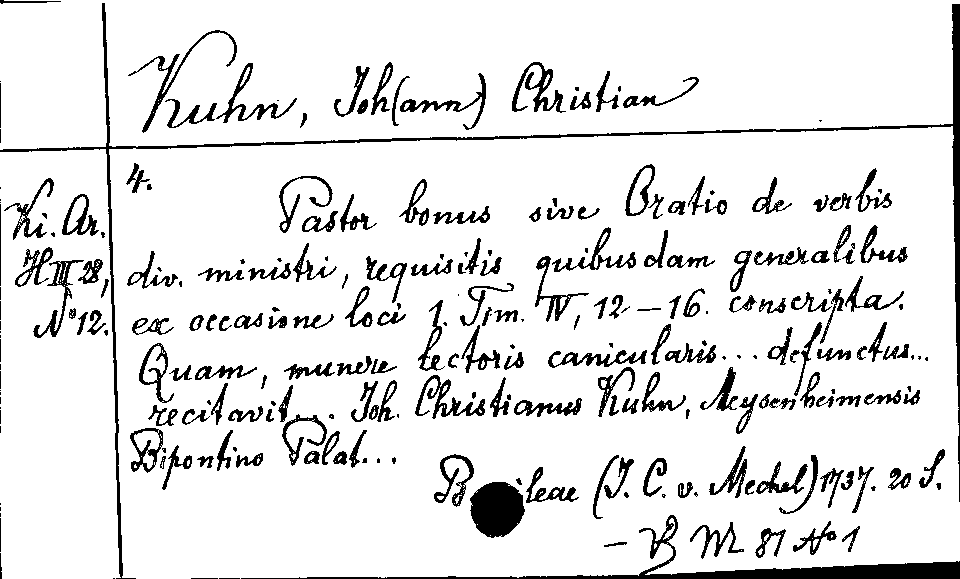 Kuhn, Joh(ann) Christian
4.
Ki. Ar.
H III 28,
No 12.
Pastor bonus sive Oratio de verbis
div. ministri, requisitis quibusdam generalibus
ex occasione loci 1. Tim. IV, 12-16. conscripta.
Quam, munere lectoris canicularis... defunctus...
recitavit... Joh. Christianus Kuhn, Meysenheimensis
Bipontino Palat...
Basileae (J. C. v. Mechel) 1737. 20 S.
- 81 No 1